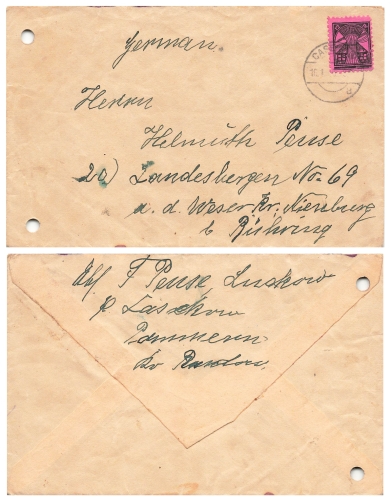 German.
Herrn
Helmuth Pense
20) Landesbergen No. 69
a. d. Weser Kr. Nienburg
b Bühring
CAS
Abs. F Pense Luckow
p Lasekow
Pommern
Kr Randow